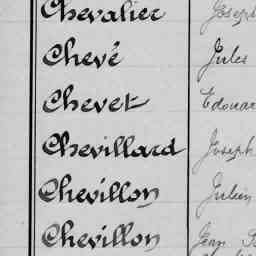 Chevalier Joseph
Chevé Jules
Chevet Edouar
Chevillard Joseph
Chevillon Julien
Chevillon Jean B